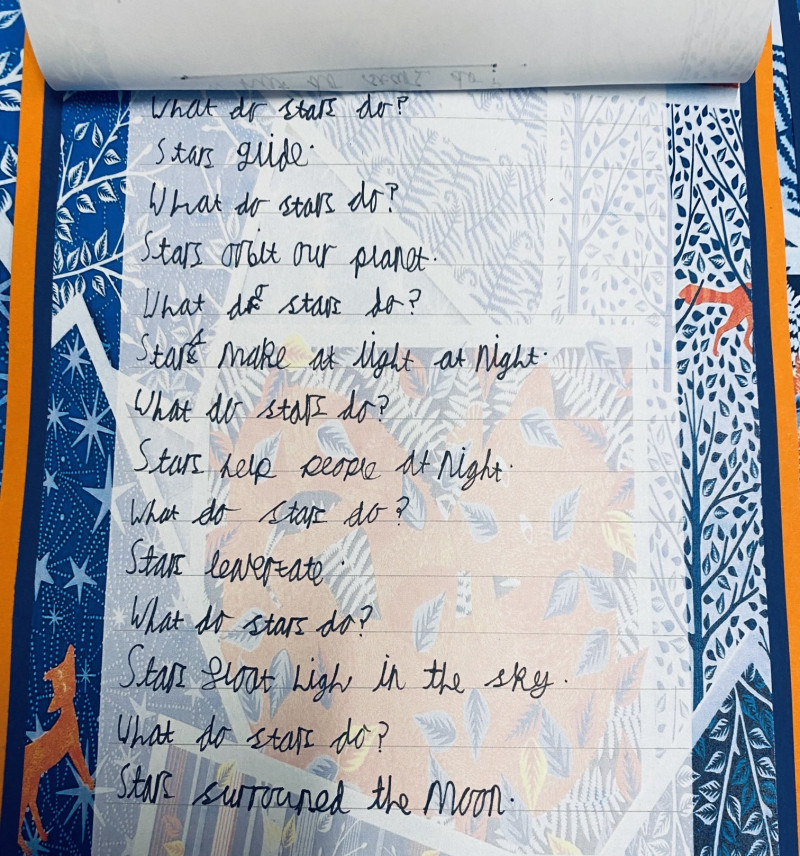 What do stars do?
Stars guide.
What do stars do?
Stars orbit our planet.
What do stars do?
Stars make at light at night.
What do stars do?
Stars help people at night.
What do stars do?
Stars levertate.
What do stars do?
Stars float high in the sky.
What do stars do?
Stars surrouned the Moon.